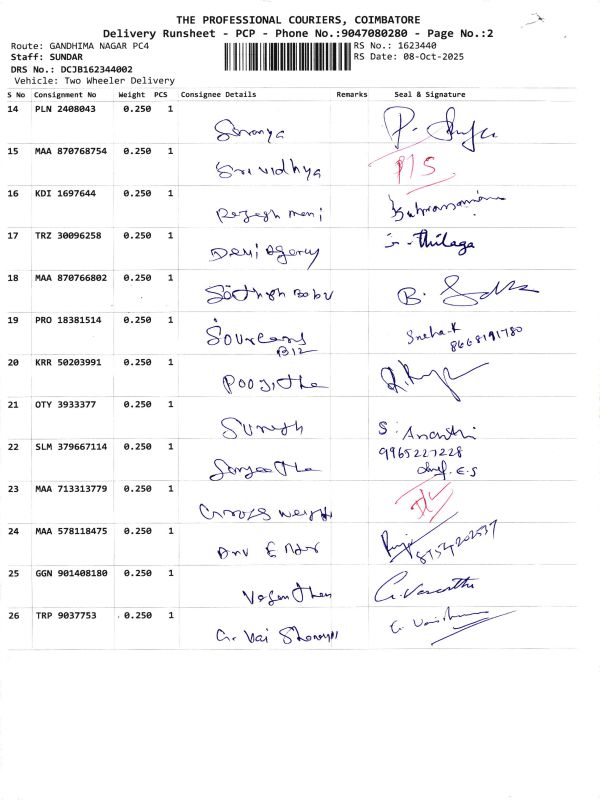 THE PROFESSIONAL COURIERS, COIMBATORE
Delivery Runsheet - PCP - Phone No.:9047080280 - Page No.:2
Route: GANDHIMA NAGAR PC4
RS No.: 1623440
Staff: SUNDAR
RS Date: 08-Oct-2025
DRS No.: DCJB162344002
Vehicle: Two Wheeler Delivery
S No Consignment No Weight PCS Consignee Details Remarks Seal & Signature
14 PLN 2408043 0.250 1
Soranya
15 MAA 870768754 0.250 1
Srividhya
16 KDI 1697644 0.250 1
Rajesh meni
17 TRZ 30096258 0.250 1
Devi Agency Thilaga
18 MAA 870766802 0.250 1
Babu B.
19 PRO 18381514 0.250 1
Sneha.K
8668191780
B12
20 KRR 50203991 0.250 1
Poojitha
21 OTY 3933377 0.250 1
Suresh S. Ananthi
22 SLM 379667114 0.250 1
9965227228
Sangeetha
23 MAA 713313779 0.250 1
24 MAA 578118475 0.250 1
8754202537
25 GGN 901408180 0.250 1
Vasanthan G. Vasantha
26 TRP 9037753 0.250 1
G. Vai